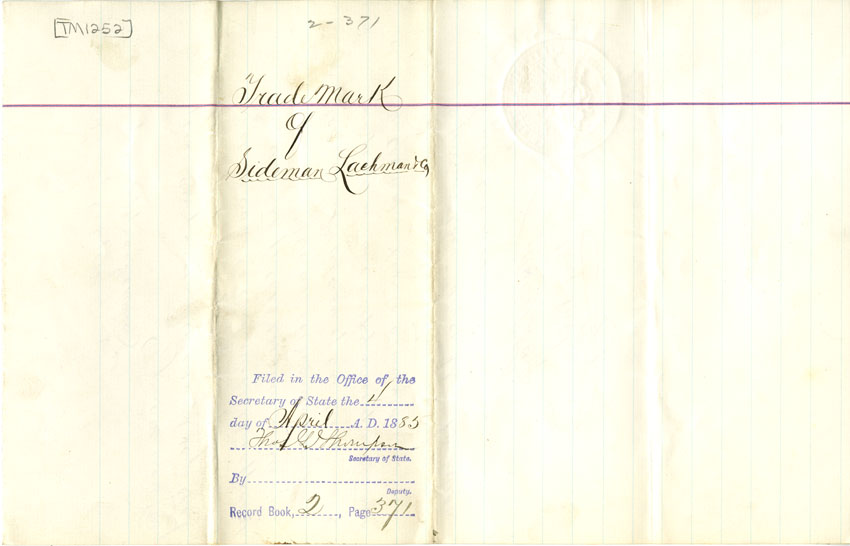 [TM1252]
2-371
Trade Mark
of
Sideman Lachman & Co
Filed in the Office of the
Secretary of State the 4
day of April A. D. 1885
Thos L Thompson
Secretary of State.
By
Deputy.
Record Book, 2, Page 371